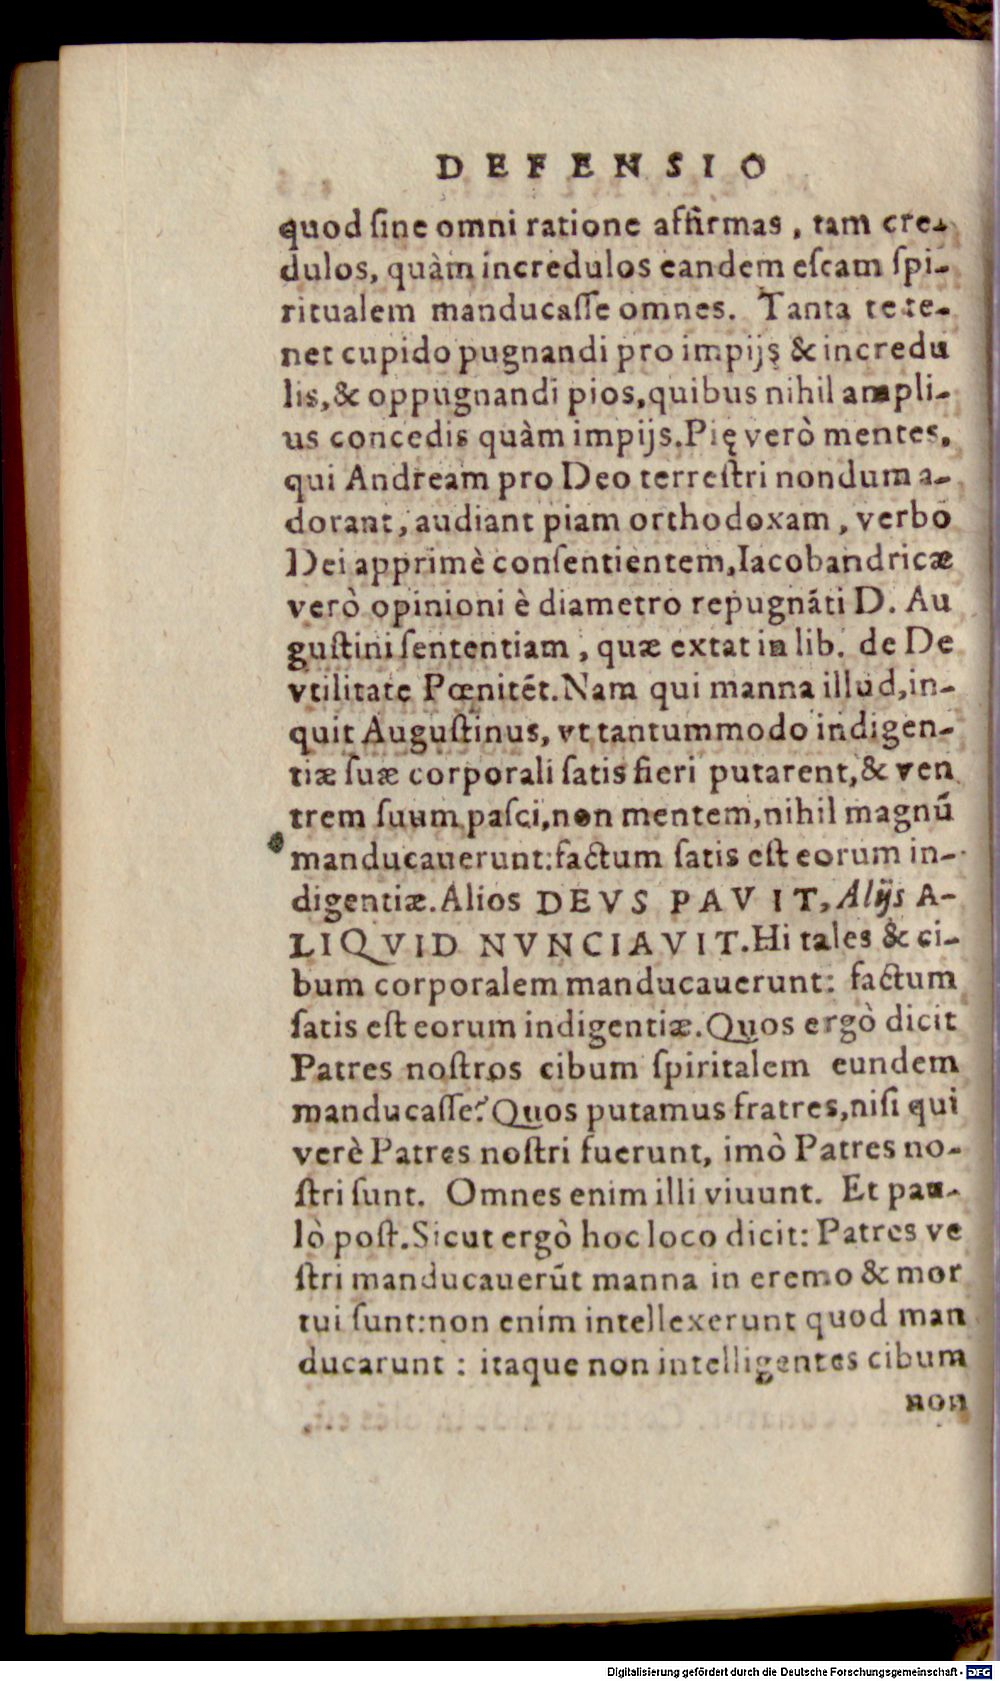 DEFENSIO
quod ſine omni ratione affirmas, tam cre-
dulos, quàm incredulos eandem eſcam ſpi-
ritualem manducaſſe omnes. Tanta te te-
net cupido pugnandi pro impijs & incredu
lis, & oppugnandi pios, quibus nihil ampli-
us concedis quàm impijs. Pię verò mentes,
qui Andream pro Deo terreſtri nondum a-
dorant, audiant piam orthodoxam, verbo
Dei apprimè conſentientem, Iacobandricæ
verò opinioni è diametro repugnāti D. Au
guſtini ſententiam, quæ extat in lib. de De
vtilitate Pœnitēt. Nam qui manna illud, in-
quit Auguſtinus, vt tantummodo indigen-
tiæ ſuæ corporali ſatis fieri putarent, & ven
trem ſuum paſci, non mentem, nihil magnū
manducauerunt: factum ſatis eſt eorum in-
digentiæ. Alios DEVS PAVIT, Alijs A-
LIQVID NVNCIAVIT. Hi tales & ci-
bum corporalem manducauerunt: factum
ſatis eſt eorum indigentiæ. Quos ergò dicit
Patres noſtros cibum ſpiritalem eundem
manducaſſe? Quos putamus fratres, niſi qui
verè Patres noſtri fuerunt, imò Patres no-
ſtri ſunt. Omnes enim illi viuunt. Et pau-
lò poſt. Sicut ergò hoc loco dicit: Patres ve
ſtri manducauerūt manna in eremo & mor
tui ſunt: non enim intellexerunt quod man
ducarunt: itaque non intelligentes cibum
non
Digitalisierung gefördert durch die Deutsche Forschungsgemeinschaft - DFG